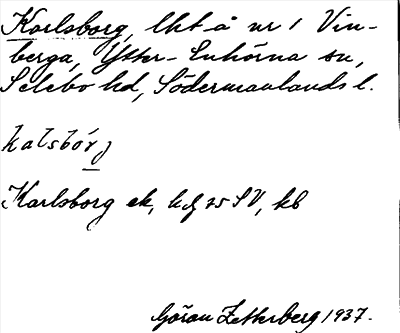 Karlsborg, lht å nr 1 Vin-
berga, Ytter-Enhörna sn,
Selebo hd, Södermanlands l.
kalsbórj
Karlsborg ek, kbl 25 SV, kb
Göran Zetterberg 1937.